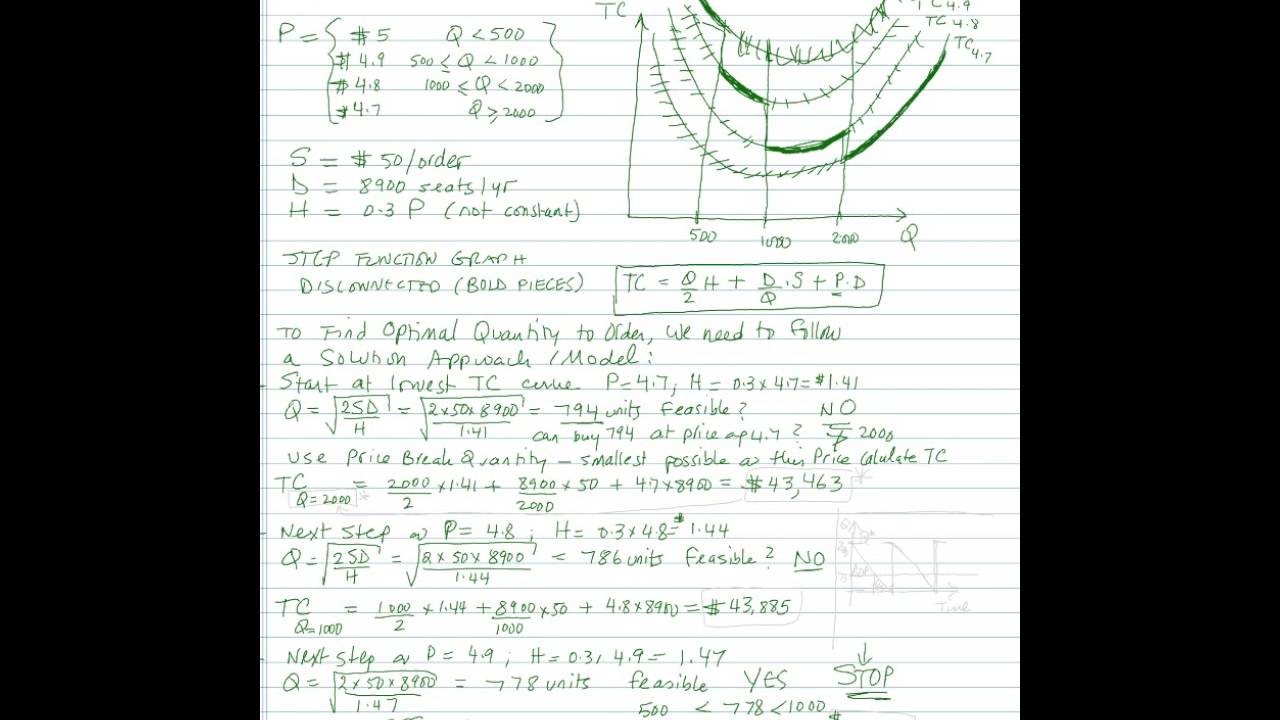 TC
TC 4.9
TC 4.8
TC 4.7
P = { $5 Q < 500
$ 4.9 500 ≤ Q < 1000
$ 4.8 1000 ≤ Q < 2000
$ 4.7 Q ≥ 2000 }
500 1000 2000 Q
S = $ 50/order
D = 8900 seats/yr
H = 0.3 P (not constant)
STEP FUNCTION GRAPH
DISCONNECTED (BOLD PIECES)
TC = Q/2 H + D/Q . S + P.D
To Find Optimal Quantity to Order, We need to follow
a Solution Approach /Model:
- Start at lowest TC curve P = 4.7, H = 0.3 x 4.7 = $1.41
Q = √(2SD/H) = √(2x50x8900/1.41) = 794 units Feasible? NO
can buy 794 at price of 4.7? 2000
Use Price Break Quantity – smallest possible @ this Price Calulate TC
TC Q=2000 = 2000/2 x 1.41 + 8900/2000 x 50 + 4.7 x 8900 = $43,463 *
- Next Step @ P = 4.8 ; H = 0.3 x 4.8 = $1.44
Q = √(2SD/H) = √(2 x 50 x 8900/1.44) = 786 units Feasible? NO
Time
TC Q=1000 = 1000/2 x 1.44 + 8900/1000 x 50 + 4.8 x 8900 = $43,885
- Next Step @ P = 4.9 ; H = 0.3 x 4.9 = 1.47
Q = √(2 x 50 x 8900/1.47) = 778 units feasible YES STOP
500 < 778 < 1000